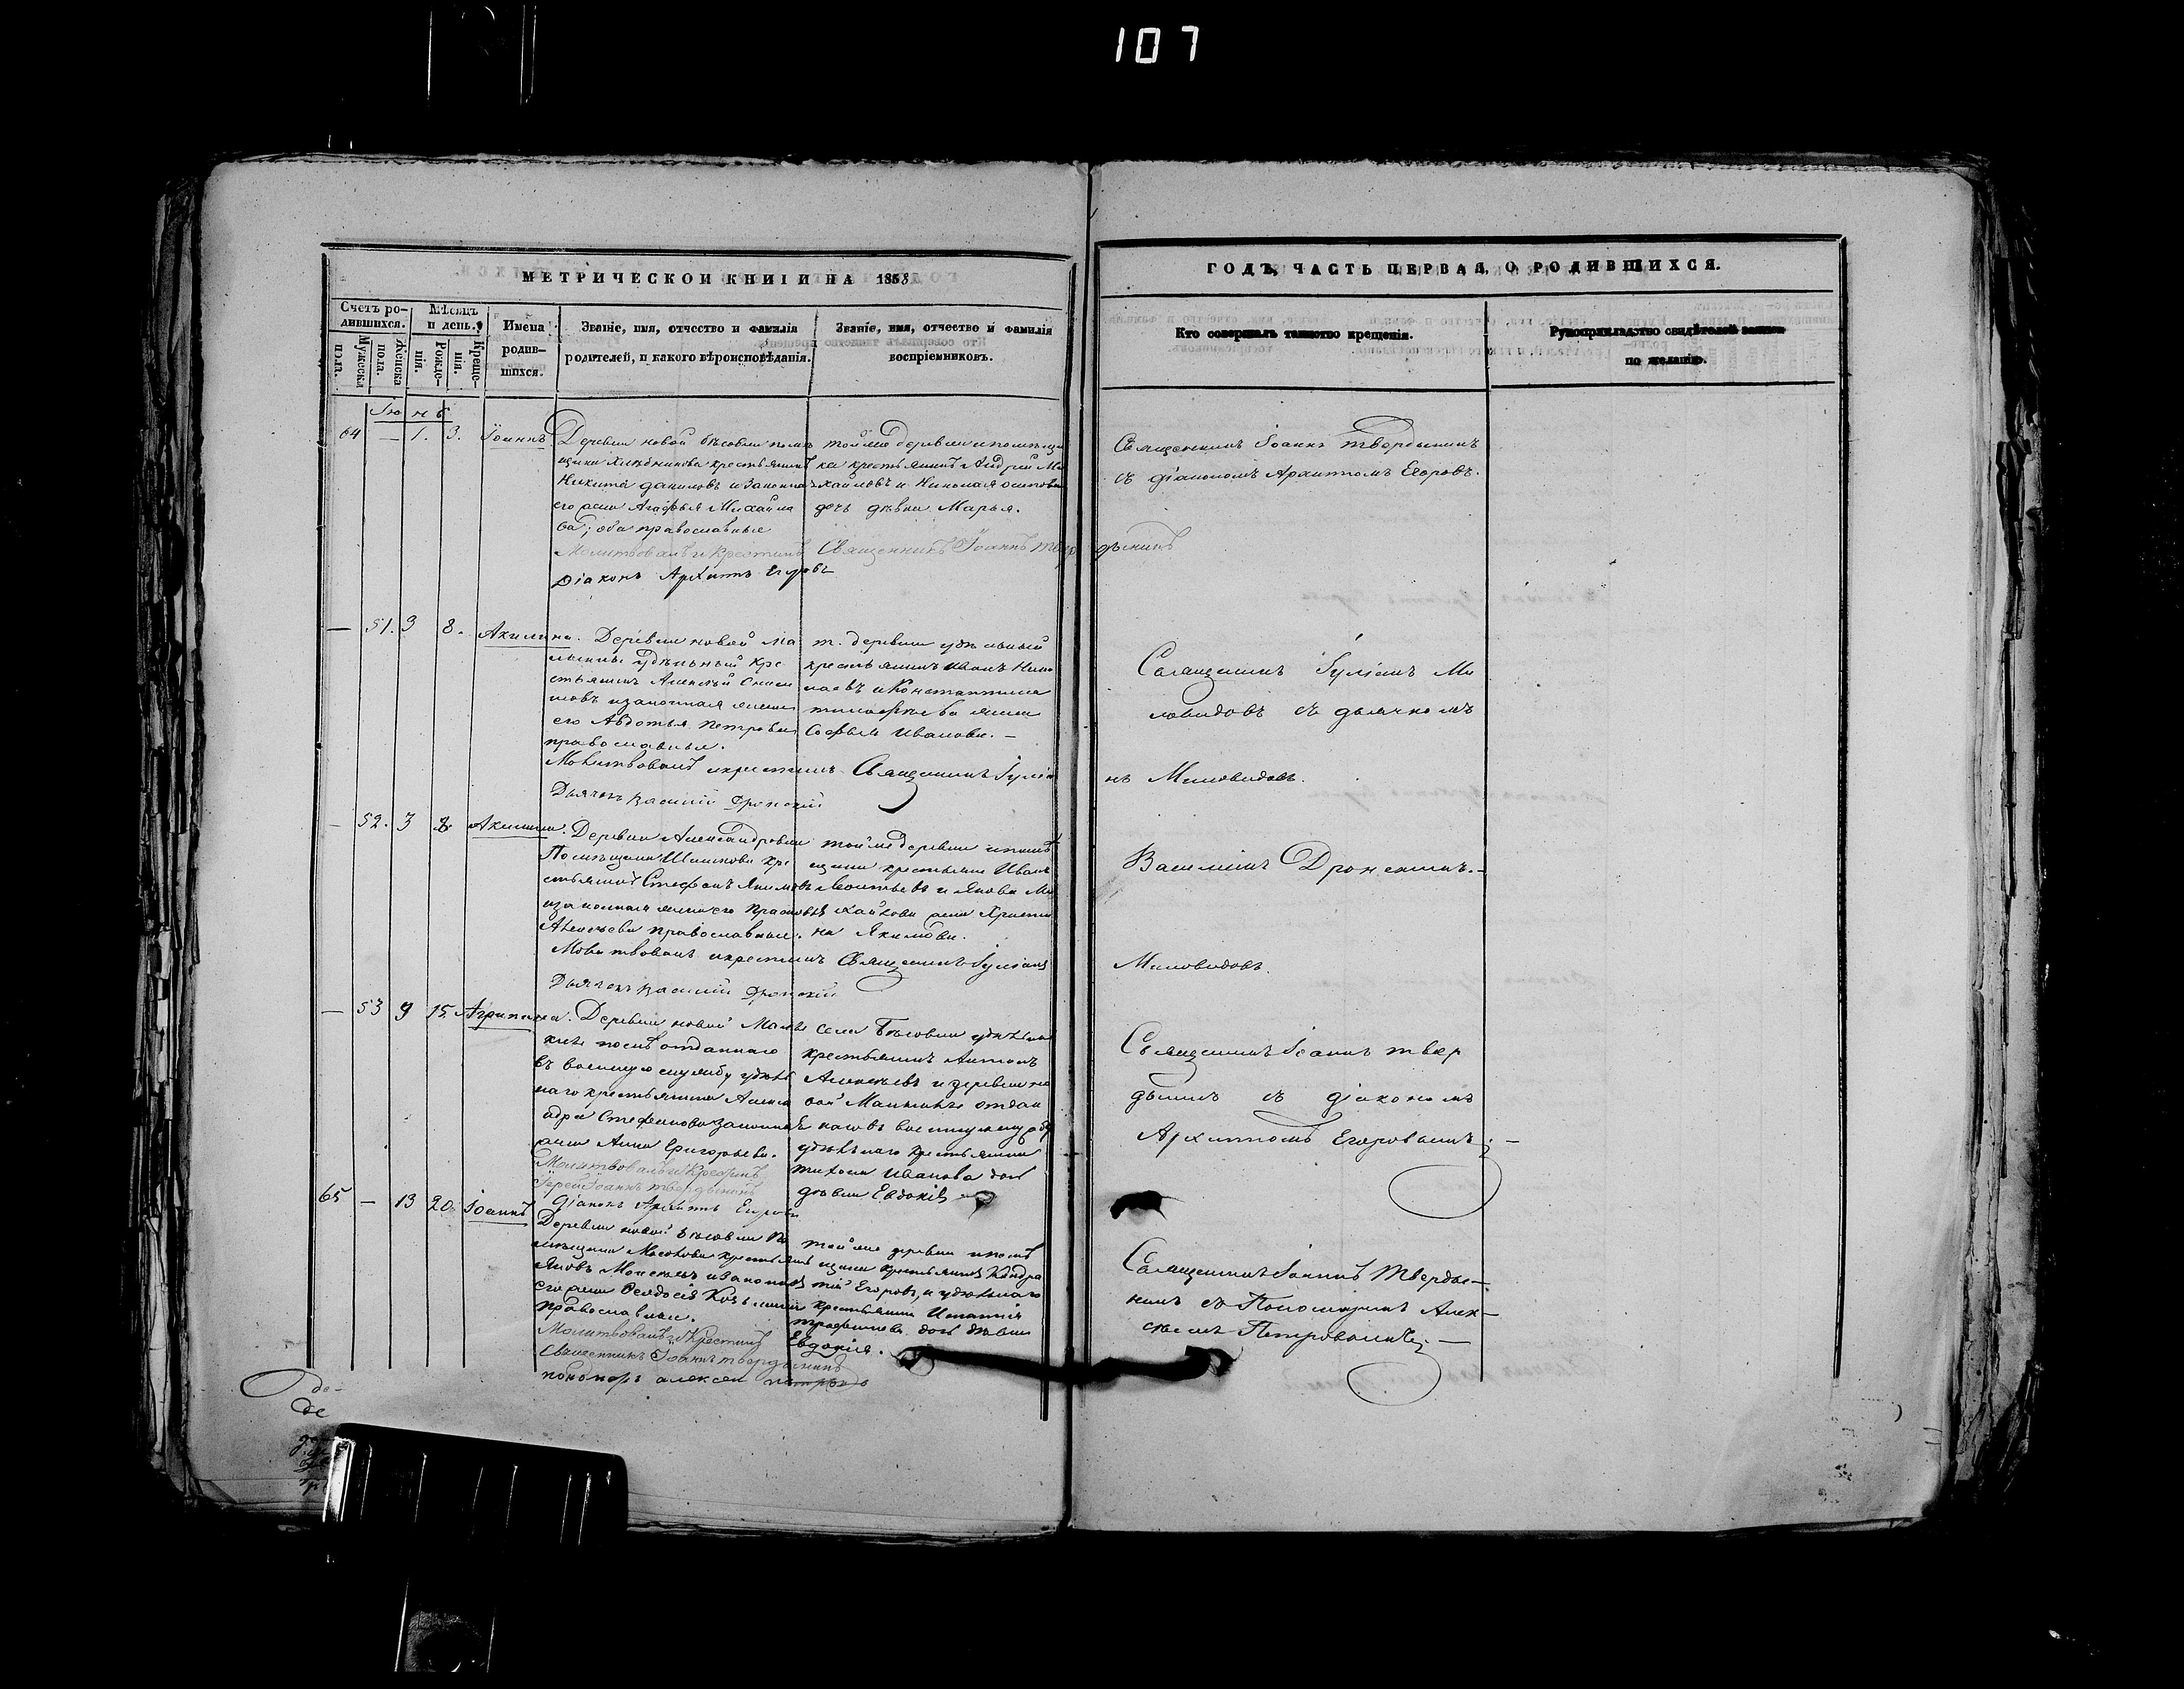 107
МЕТРИЧЕСКОЙ КНИГИ НА 1858
ГОДЪ, ЧАСТЬ ПЕРВАЯ, О РОДИВШИХСЯ.
Счетъ родившихся.
Мужеска пола.
Женска пола.
Мѣсяцъ и день.
Рожденія.
Крещенія.
Имена родившихся.
Званіе, имя, отчество и фамилія родителей, и какого вѣроисповѣданія.
Званіе, имя, отчество и фамилія воспріемниковъ.
Кто совершалъ таинство крещенія.
Рукоприкладство свидѣтелей записи по желанію.
Іюнь
64 — 1. 3. Іоаннъ
Деревни новой бѣсовки помѣ
щика крестьянинъ
Никита Даниловъ и законная
его жена Агафья Михайло
ва; оба православные
Молитвовалъ и крестилъ Священникъ Іоаннъ Твердынинъ
Діаконъ Архипъ Егоровъ
той же деревни и помѣщи
ка крестьянинъ Андрей Ми
хайловъ и Николая Осипова
дочь дѣвка Марья.
Священникъ Іоаннъ Твердынинъ
съ діакономъ Архипомъ Егоровъ.
— 51. 3 8. Акилина.
Деревни новой Ма
лыклы удѣльный кре
стьянинъ Алексѣй
и законная жена
его Авдотья Петрова
православные.
Молитвовалъ и крестилъ Священникъ Іуліанъ Миловидовъ.
Дьячекъ Василій Дронскій
т. деревни удѣльный
крестьянинъ Иванъ Нико
лаевъ и Константина
Тимофѣева жена
Софья Иванова. —
Священникъ Іуліанъ Ми
ловидовъ съ дьячкомъ
Василіемъ Дронскимъ. —
— 52. 3 8. Акилина.
Деревни Александровки
Помѣщика кре
стьянинъ Стефанъ Якимовъ
и законная жена его Прасковья
Алексѣева православные.
Молитвовалъ и крестилъ Священникъ Іуліанъ Миловидовъ.
Дьячекъ Василій Дронскій
той же деревни и помѣ
щика крестьяне Иванъ
Леонтьевъ и Якова Ми
хайлова жена Христи
на Якимова.
— 53 9 15. Агрипина.
Деревни новой Малы
клы послѣ отданнаго
въ военную службу удѣль
наго крестьянина Алекса
ндра Стефанова законная
жена Анна Григорьева.
Молитвовалъ и крестилъ
Іерей Іоаннъ Твердынинъ
Діаконъ Архипъ Егоровъ
села Бѣсовки удѣльный
крестьянинъ Антонъ
Алексѣевъ и деревни но
вой Малыклы отдан
наго въ военную службу
удѣльнаго крестьянина
Тихона Иванова дочь
дѣвка Евдокія
Священникъ Іоаннъ Твер
дынинъ съ діакономъ
Архипомъ Егоровымъ; —
65 — 13 20. Іоаннъ
Деревни новой Бѣсовки По
мѣщика крестьянинъ
Яковъ Моисеевъ и законная
его жена Феодосія Козьмина
православные.
Молитвовалъ и крестилъ
Священникъ Іоаннъ Твердынинъ
пономарь алексеи петровъ
той же деревни и помѣ
щика крестьянинъ Кондра
тій Егоровъ, и удѣльнаго
крестьянина Игнатія
Трофимова дочь дѣвка
Евдокія.
Священникъ Іоаннъ Тверды—
нинъ съ Пономаремъ Алек—
сѣемъ Петровымъ; —